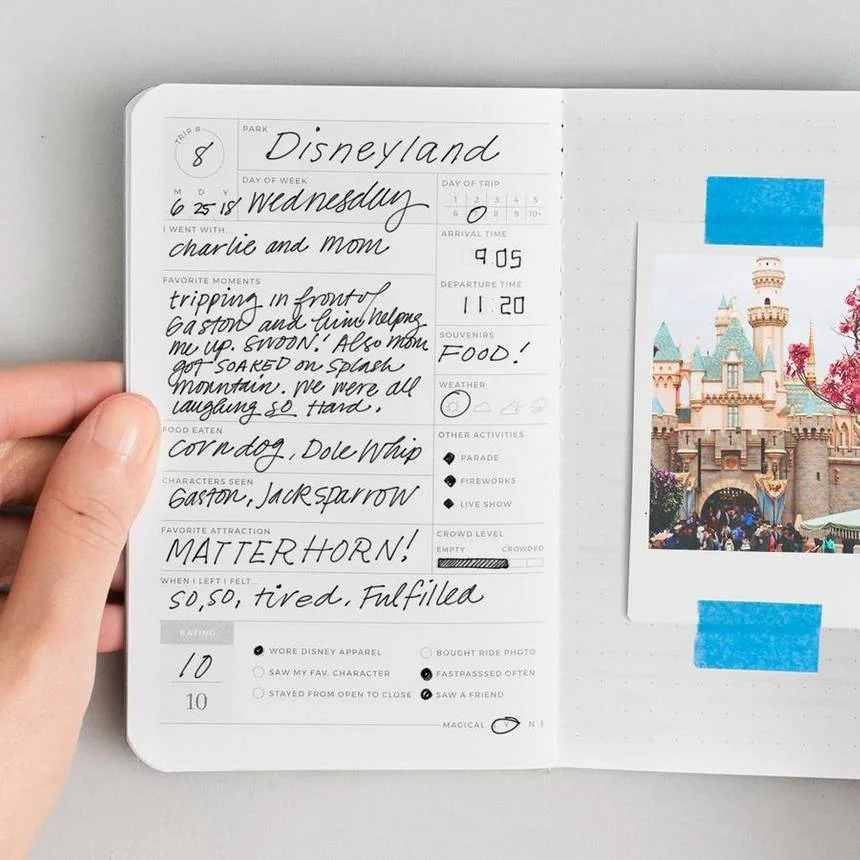 TRIP #
8
PARK
Disneyland
M D Y
6 25 18
DAY OF WEEK
Wednesday
DAY OF TRIP
1 2 3 4 5
6 8 9 10+
I WENT WITH...
charlie and mom
ARRIVAL TIME
9:05
DEPARTURE TIME
11:20
FAVORITE MOMENTS
tripping in front of
Gaston and him helping
me up. SWOON! Also mom
got SOAKED on splash
mountain. We were all
laughing so Hard.
SOUVENIRS
FOOD!
WEATHER
FOOD EATEN
corndog, Dole Whip
OTHER ACTIVITIES
PARADE
FIREWORKS
LIVE SHOW
CHARACTERS SEEN
Gaston, Jack Sparrow
FAVORITE ATTRACTION
MATTERHORN!
CROWD LEVEL
EMPTY CROWDED
WHEN I LEFT I FELT...
SO, SO, tired. Fulfilled
RATING
10
10
WORE DISNEY APPAREL
SAW MY FAV. CHARACTER
STAYED FROM OPEN TO CLOSE
BOUGHT RIDE PHOTO
FASTPASSSED OFTEN
SAW A FRIEND
MAGICAL Y N